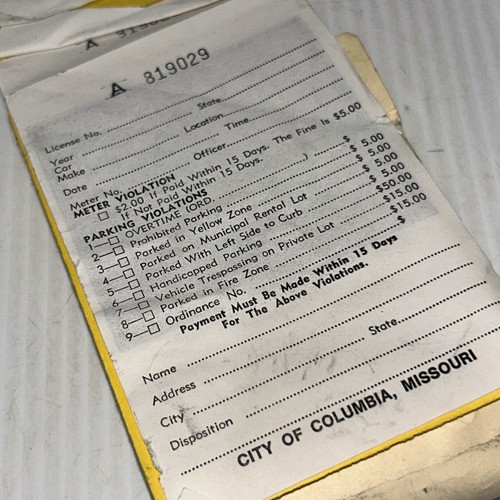 A
A 819029
License No. State
Year Location
Car
Make Time
Date Officer
Meter No.
METER VIOLATION
$2.00 If Paid Within 15 Days. The Fine Is $5.00
If Not Paid Within 15 Days.
PARKING VIOLATIONS
1 OVERTIME (ORD. ) $ 5.00
2 Prohibited Parking $ 5.00
3 Parked in Yellow Zone $ 5.00
4 Parked on Municipal Rental Lot $ 5.00
5 Parked With Left Side to Curb $ 5.00
6 Handicapped Parking $50.00
7 Vehicle Trespassing on Private Lot $15.00
8 Parked in Fire Zone $15.00
9 Ordinance No. $
Payment Must Be Made Within 15 Days
For The Above Violations.
Name
Address
City State
Disposition
CITY OF COLUMBIA, MISSOURI